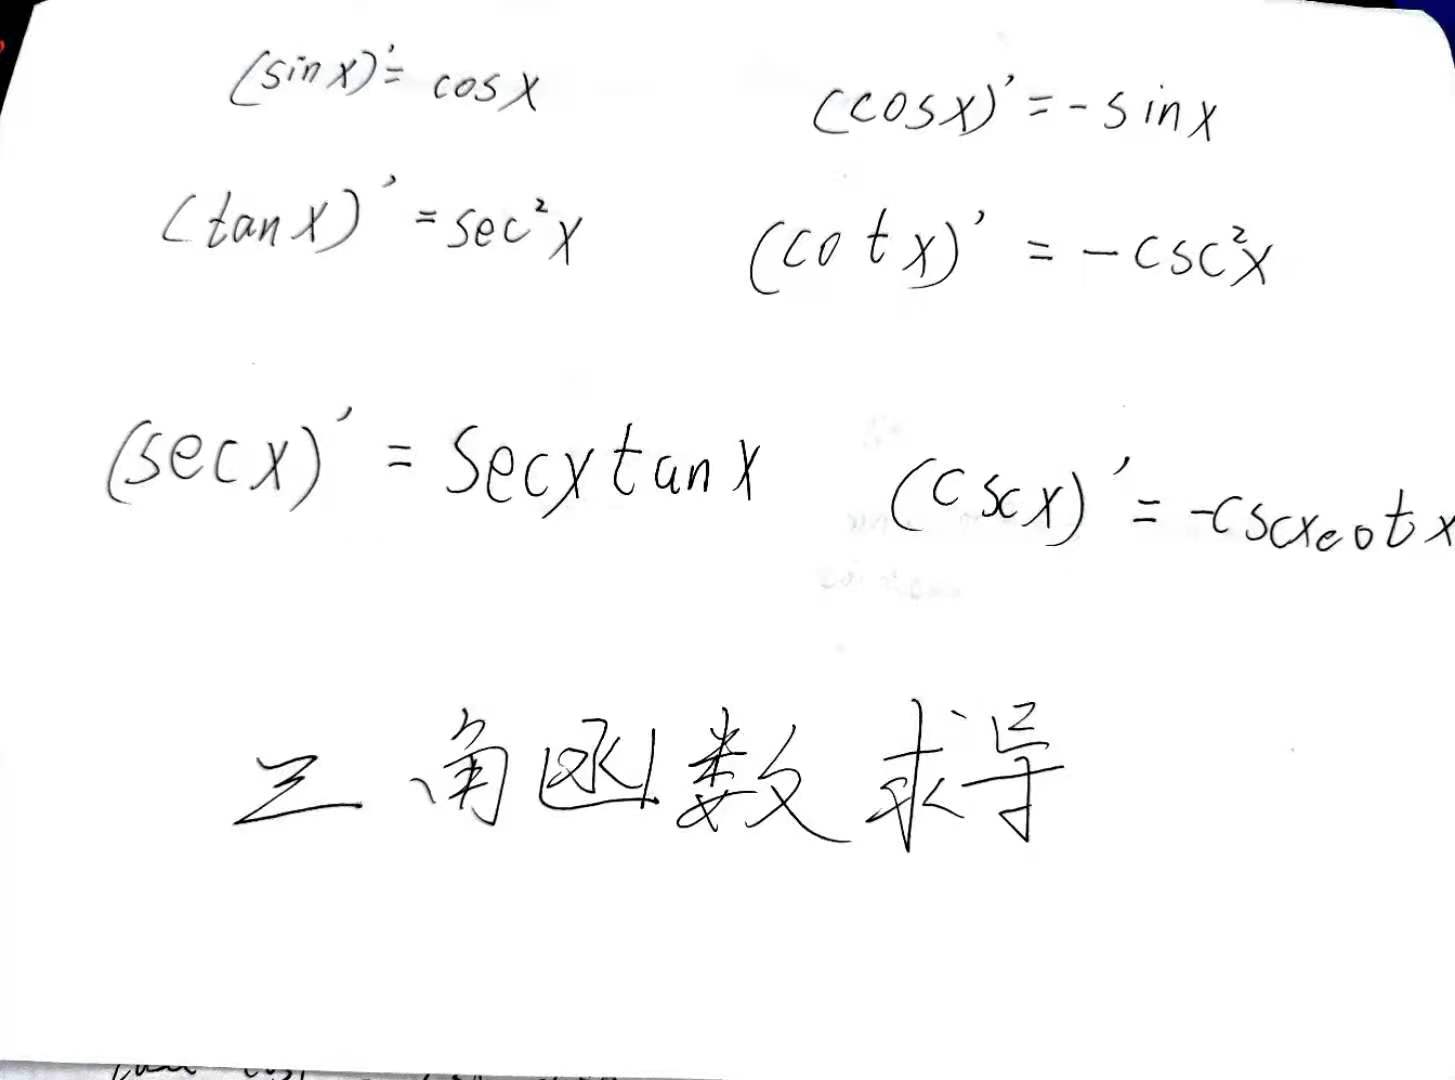 (sin x)' = cos x
(cos x)' = -sin x
(tan x)' = sec²x
(cot x)' = -csc²x
(sec x)' = secx tan x
(csc x)' = -cscxcot x
三角函数求导